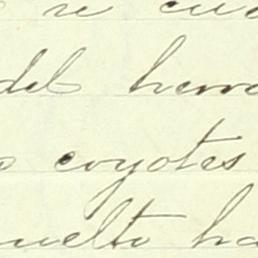 se cu
del herre
coyotes
uelto ha